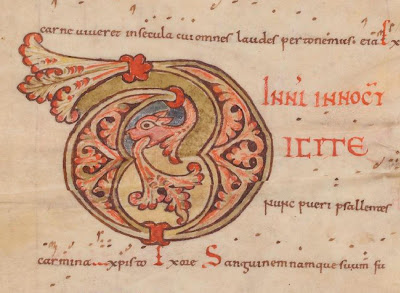 carne viveret in secula cui omnes laudes personemus. etia
INNI INNOCTI
ICITE
nunc pueri psallentes
carmina xpisto Ixore Sanguinem namque suum fu